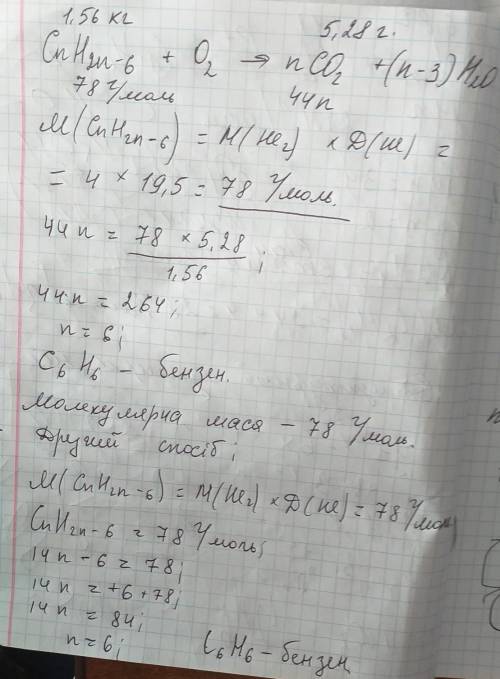 1,56 кг 5,28 г.
CnH2n-6 + O2 → nCO2 + (n-3)H2O
78 г/моль 44n
M(CnH2n-6) = M(He2) × Д(He) =
= 4 × 19,5 = 78 г/моль.
44n = 78 × 5,28 / 1,56 ;
44n = 264;
n = 6;
C6H6 - бензен.
Молекулярна маса - 78 г/моль.
Другий спосіб;
M(CnH2n-6) = M(He2) × Д(He) = 78 г/моль
CnH2n-6 = 78 г/моль;
14n - 6 = 78;
14n = +6 + 78;
14n = 84;
n = 6; C6H6 - бензен